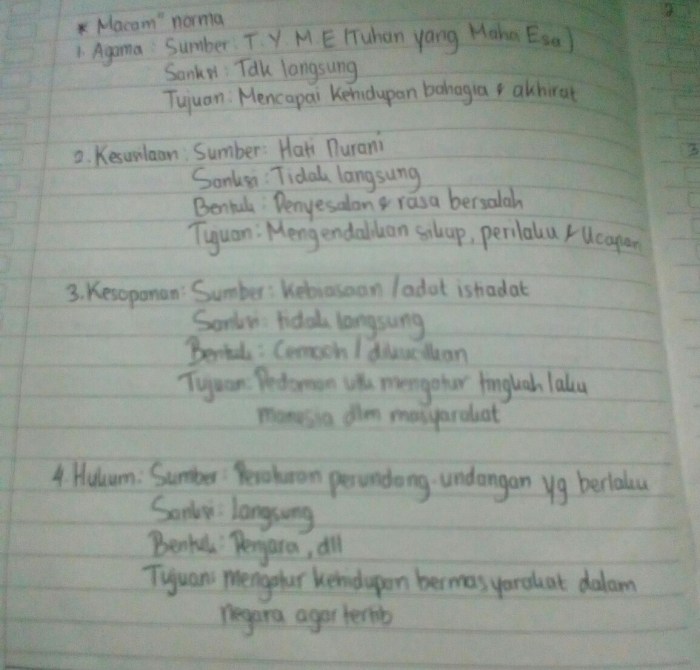 * Macam" norma
1. Agama : Sumber : T.Y.M.E (Tuhan yang Maha Esa)
Sanksi : Tdk langsung
Tujuan : Mencapai kehidupan bahagia & akhirat
2. Kesusilaan : Sumber : Hati Nurani
Sanksi : Tidak langsung
Bentuk : Penyesalan & rasa bersalah
Tujuan : Mengendalikan sikap, perilaku & Ucapan
3. Kesopanan : Sumber : kebiasaan / adat istiadat
Sanksi : tidak langsung
Bentuk : Cemooh / dikucilkan
Tujuan : Pedoman utk mengatur tingkah laku
manusia dlm masyarakat
4. Hukum : Sumber : Peraturan perundang-undangan yg berlaku
Sanksi : langsung
Bentuk : Penjara, dll
Tujuan : mengatur kehidupan bermasyarakat dalam
negara agar tertib
2
3